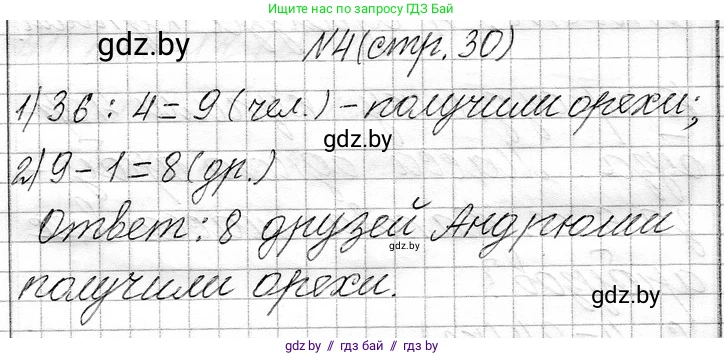 Ищите нас по запросу ГДЗ Бай
gdz.by
№4 (стр. 30)
1) 36 : 4 = 9 (чел.) - получили орехи;
gdz.by
2) 9 - 1 = 8 (др.)
Ответ: 8 друзей Андрюши
gdz.by
получили орехи.
gdz.by
gdz.by // гдз бай // гдз by